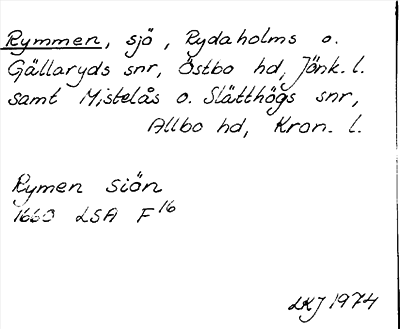 Rymmen, sjö, Rydaholms o.
Gällaryds snr, Östbo hd, Jönk. l.
samt Mistelås o. Slätthögs snr,
Allbo hd, Kron. l.
Rymen Siön
1660 LSA F16
LKJ 1974